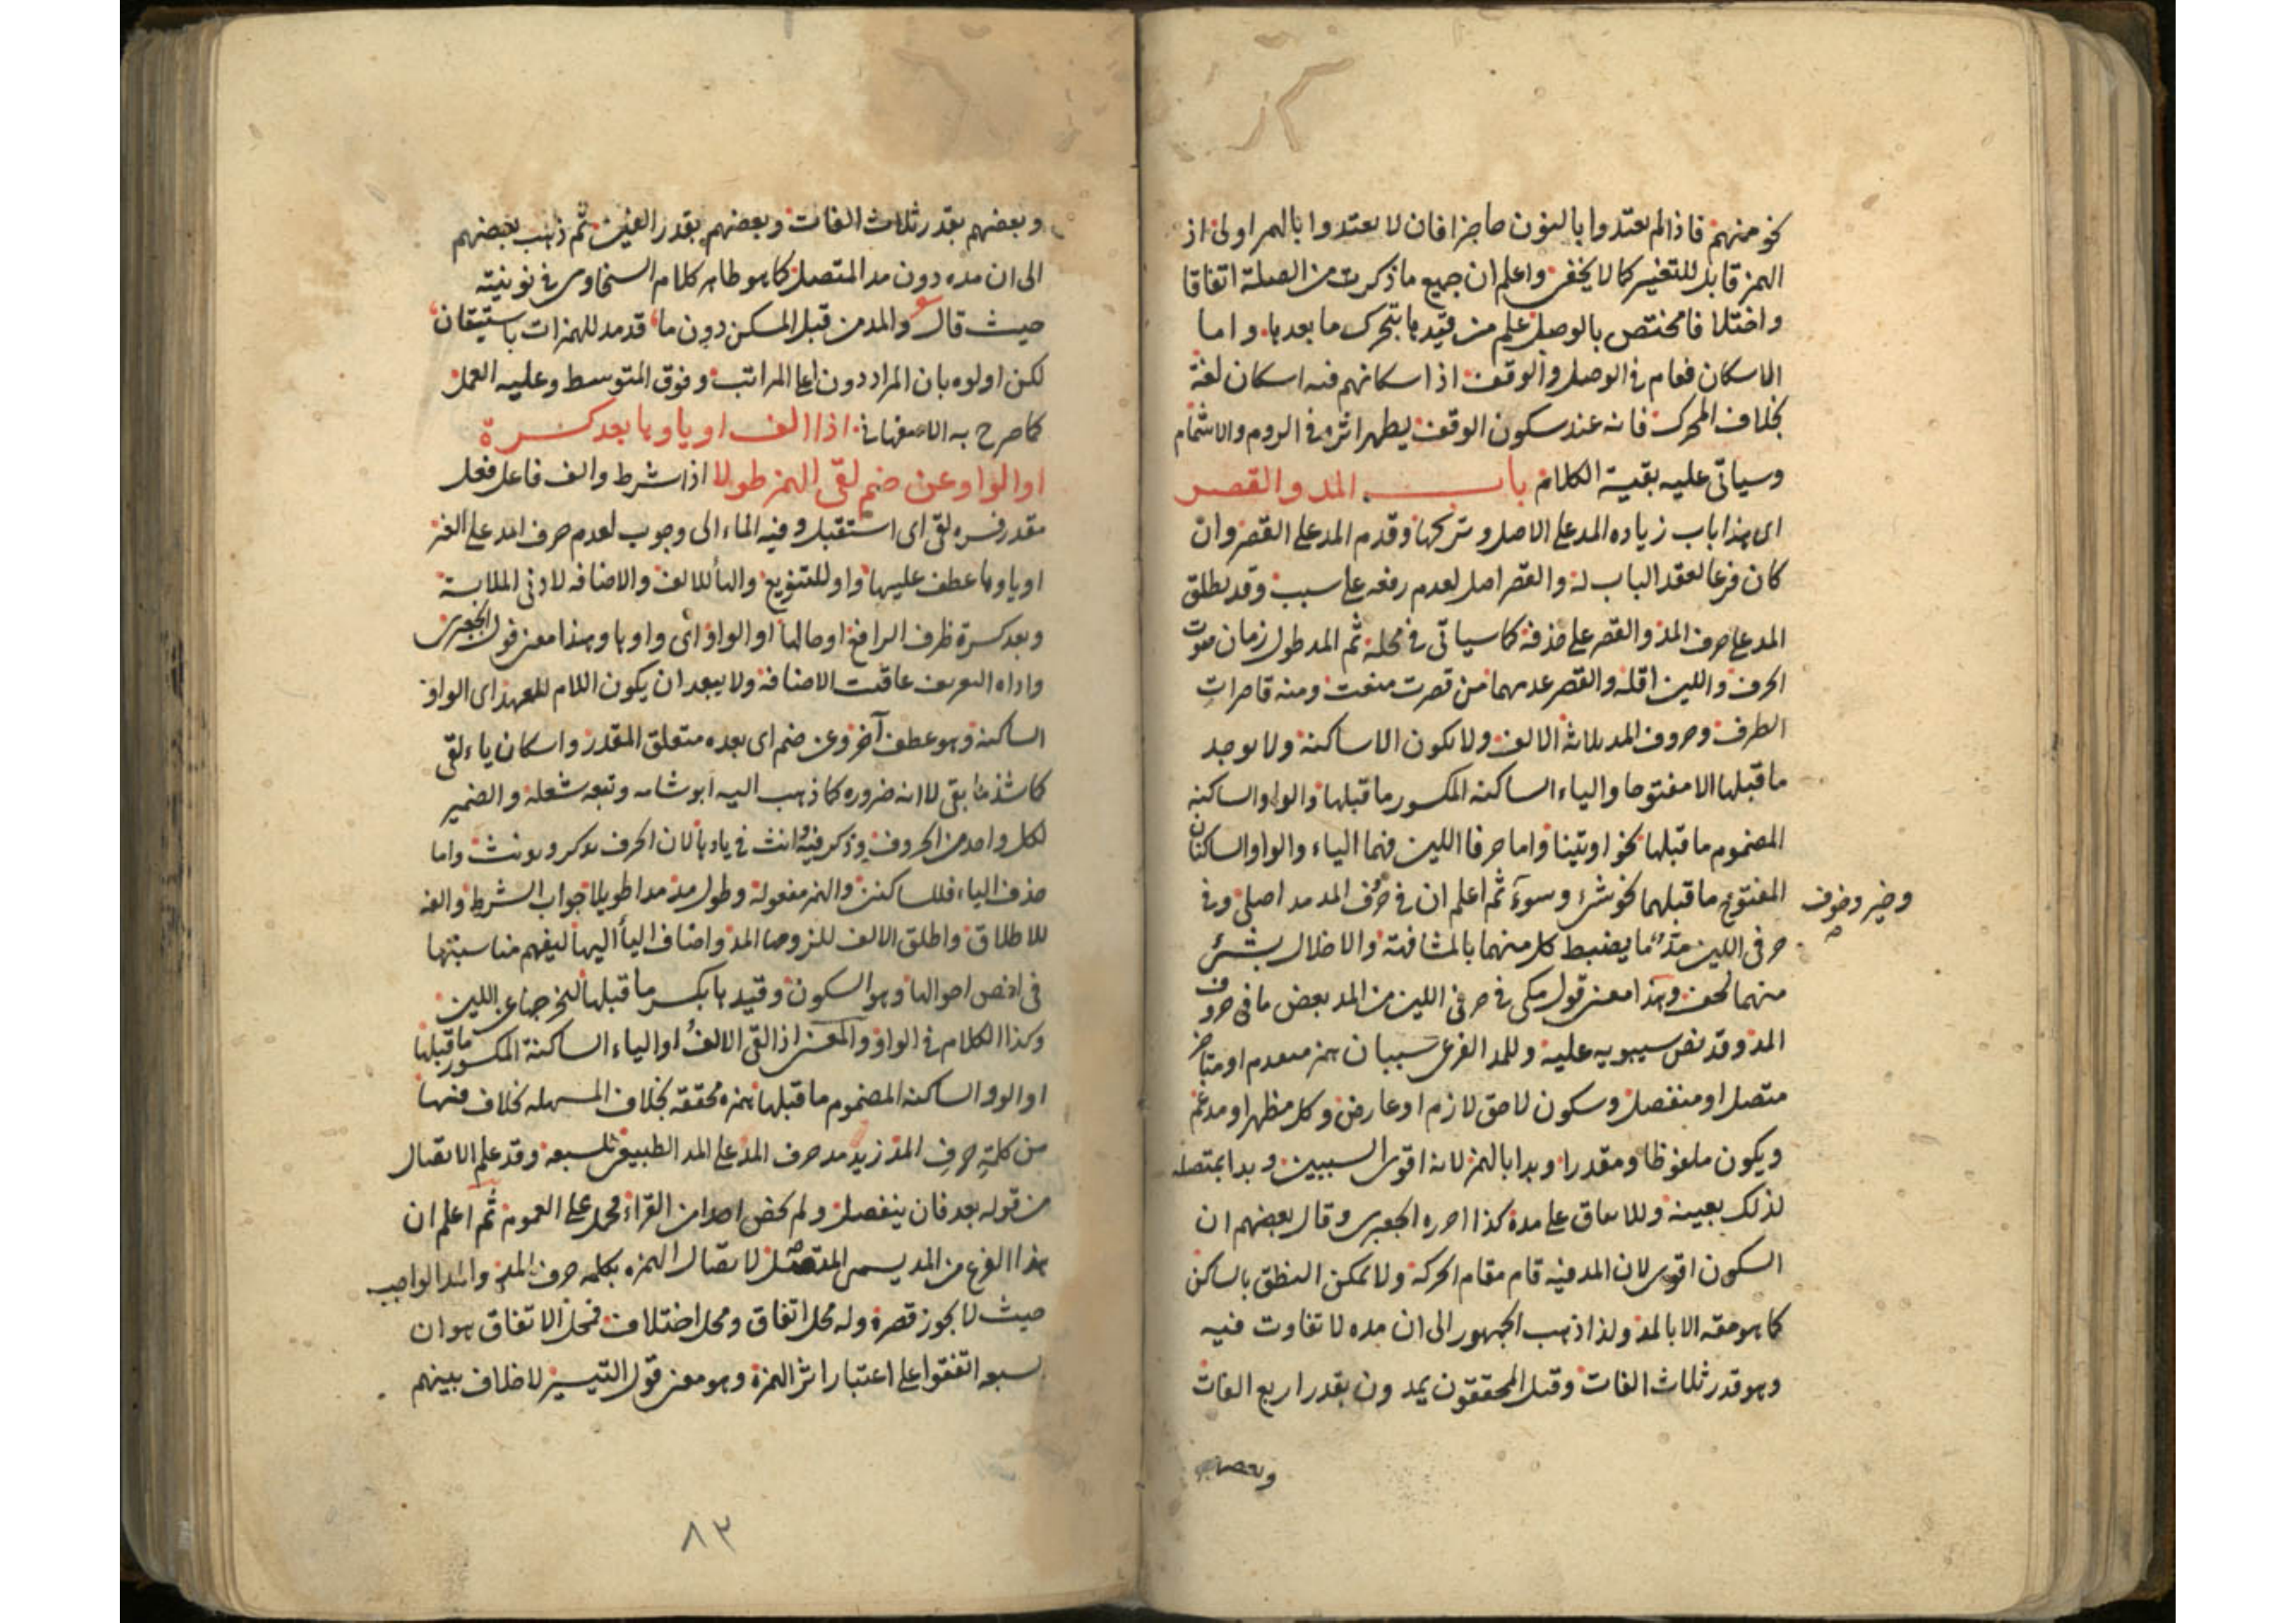 نحو منهم فاذا لم يعتدوا بالنون حاجزا فان لا يعتدوا بالهمز اولى اذ
الهمز قابل للتغيير كما لا يخفى واعلم ان جميع ما ذكرت من الصلة اتفاقا
واختلافا مختص بالوصل علم من قيدها بتحرك ما بعدها واما
الاسكان فعام في الوصل والوقف اذ اسكانهم فيه اسكان لغة
بخلاف المحرك فانه عند سكون الوقف يظهر اثره في الروم والاشمام
وسياتي عليه بقية الكلام باب المد والقصر
اى هذا باب زياده المد على الاصل وتركها وقدم المد على القصر وان
كان فرعا لعقد الباب له والقصر اصل لعدم رفعه على سبب وقد يطلق
المد على حرف المد والقصر على حذفه كما سياتى في محله ثم المد طول زمان صوت
الحرف واللين اقله والقصر عدمهما من قصرت منعت ومنه قاصرات
الطرف وحروف المد ثلاثة الالف ولا تكون الا ساكنة ولا يوجد
ما قبلها الا مفتوحا والياء الساكنه المكسور ما قبلها والواو الساكنه
المضموم ما قبلها نحو اوتينا واما حرفا اللين فهما الياء والواو الساكنان
المفتوح ما قبلهما نحو شئ وسوء ثم اعلم ان في حرف المد مد اصلي وفي
وخير وخوف
حرفى اللين مد ما يضبط كل منهما بالمشافهة والاخلال بشئ
منهما لحن وهذا معنى قول مكى في حرفى اللين من المد بعض ما فى حروف
المد وقد نص سيبويه عليه وللمد الفرعى سببان همز متقدم او متاخر
متصل او منفصل وسكون لاحق لازم او عارض وكل مظهر او مدغم
ويكون ملفوظا ومقدرا وبدا بالهمز لانه اقوى السببين وبدا بمتصله
لذلك بعينه وللاتفاق على مده كذا احرره الجعبرى وقال بعضهم ان
السكون اقوى لان المد فيه قام مقام الحركة ولا يمكن النطق بالساكن
كما هو حقه الا بالمد ولذا ذهب الجمهور الى ان مده لا تفاوت فيه
وهو قدر ثلاث الفات وقيل المحققون يمدون بقدر اربع الفات
وبعضهم
وبعضهم بقدر ثلاث الفات وبعضهم بقدر الفين ثم ذهب بعضهم
الى ان مده دون مد المتصل كما هو ظاهر كلام السخاوى في نونيته
حيث قال والمد من قبل المسكن دون ما قد مد للهمزات باستيقان
لكن اولوه بان المراد دون اعلى المراتب وفوق المتوسط وعليه العمل
كما صرح به الاصفهانى اذا الف او ياوها بعد كسرة
او الواو عن ضم لقى الهمز طولا اذا شرط والف فاعل فعل
مقدر فسره لقى اى استقبل وفيه ايماء الى وجوب تقدم حرف المد على الهمز
او ياوها عطف عليها واو للتنويع والهاء للالف والاضافه لادنى الملابسة
وبعد كسرة ظرف الرافع او حالها او الواو اى واوها وهذا معنى قول الجعبرى
واداه التعريف عاقبت الاضافة ولا يبعد ان يكون اللام للعهد اى الواو
الساكنه وهو عطف آخر وعن ضم اى بعده متعلق المقدر واسكان ياء لقى
كما شذ ما بقى لا انه ضروره كما ذهب اليه ابو شامه وتبعه شعلة والضمير
لكل واحد من الحروف وذكر فيه وانث في ياءها لان الحرف يذكر ويونث واما
حذف الياء فللساكنين والهمز مفعوله وطول مد مدا طويلا جواب الشرط والفه
للاطلاق واطلق الالف للزومها المد واضاف الياء اليها ليفهم مناسبتها
فى اخص احوالها وهو السكون وقيدها بكسر ما قبلها ليخرجها عن اللين
وكذا الكلام في الواو والمعنى اذا لقى الالف او الياء الساكنة المكسور ما قبلها
او الواو الساكنه المضموم ما قبلها همزه محققه بخلاف المسهله بخلاف فيها
من كلمة حرف المد زيد مد حرف المد على المد الطبيعى للسبعه وقد علم الاتصال
من قوله بعد فان ينفصل ولم يخص احدا من القراء فحمل على العموم ثم اعلم ان
هذا النوع من المد يسمى المتصل لاتصال الهمزه بكلمه حرف المد والمد الواجب
حيث لا يجوز قصره وله محل اتفاق ومحل اختلاف فمحل الاتفاق هو ان
السبعه اتفقوا على اعتبار اثر الهمزة وهو معنى قول التيسير لا خلاف بينهم
٨٣